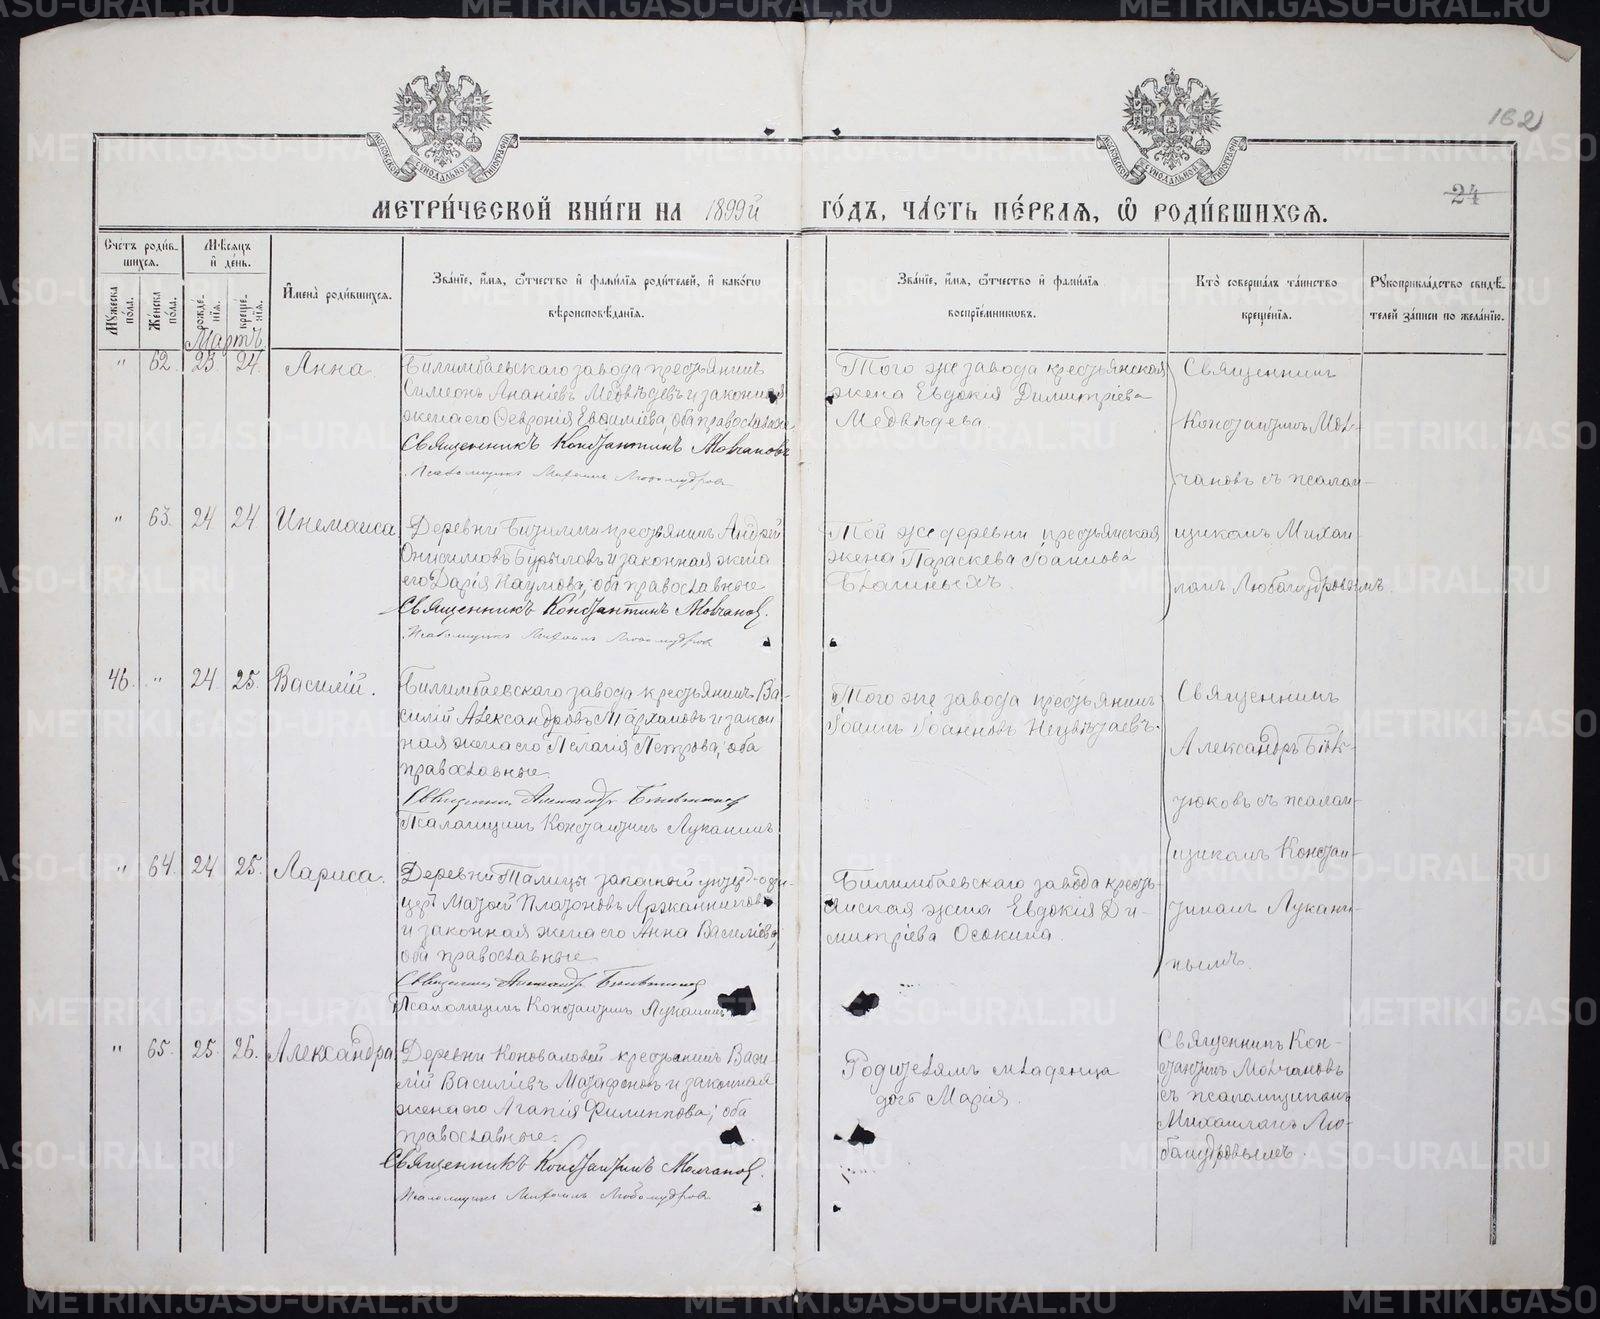 162
24
МОСКОВСКОЙ СУНОДАЛЬНОЙ ТИПОГРАФІИ
МОСКОВСКОЙ СУНОДАЛЬНОЙ ТИПОГРАФІИ
МЕТРИ́ЧЕСКОЙ КНИ́ГИ НА 1899й ГО́ДЪ, ЧА́СТЬ ПЕ́РВАѦ, Ѿ РОДИ́ВШИХСѦ.
Сче́тъ роди́в-
шихсѧ.
Мѣ́сѧцъ
и҆ де́нь.
Мꙋ́жеска по́ла.
Же́нска по́ла.
рожде́-нїѧ.
креще́-нїѧ.
И҆мена̀ роди́вшихсѧ.
Зва́нїе, и҆́мѧ, ѻ҆́тчество и҆ фами́лїѧ роди́телей, и҆ како́гѡ
вѣроисповѣ́данїѧ.
Зва́нїе, и҆́мѧ, ѻ҆́тчество и҆ фами́лїѧ
воспрїе́мникѡвъ.
Кто̀ соверша́лъ та́инство
креще́нїѧ.
Рꙋкоприкла́дство свидѣ́-
телей за́писи по жела́нїю.
Мартъ.
" 62. 23. 24. Анна.
Билимбаевскаго завода крестьянинъ
Симеонъ Ананіевъ Медвѣдевъ и законная
жена его Феврония Евѳиміева, оба православные.
Священникъ Константинъ Молчановъ
Псаломщикъ Михаилъ Любомудровъ
Того же завода крестьянская
жена Евдокія Димитріева
Медвѣдева.
Священникъ
Константинъ Мол-
чановъ съ псалом-
щикомъ Михаи-
ломъ Любомудровымъ.
" 63. 24 24 Инемаиса
Деревни крестьянинъ Андрей
Онисимовъ Бурыловъ и законная жена
его Дарія Наумова; оба православные
Священникъ Константинъ Молчановъ.
Псаломщикъ Михаилъ Любомудровъ
Той же деревни крестьянская
жена Параскева Іоаннова
46. " 24. 25. Василій.
Билимбаевскаго завода крестьянинъ Ва-
силій Александровъ и закон
ная жена его Пелагія Петрова; оба
православные.
Священникъ Александръ
Псаломщикъ Константинъ Луканинъ
Того же завода крестьянинъ
Іоаннъ Іоанновъ Нецвѣтаевъ.
Священникъ
Александръ
съ псалом-
щикомъ Констан-
тиномъ Лукани-
нымъ.
" 64. 24 25. Лариса.
Деревни Талицы запасный унтер-офи-
церъ Платоновъ Аржанниковъ
и законная жена его Анна Василіева;
оба православные
Священникъ Александръ
Псаломщикъ Константинъ Луканинъ
Билимбаевскаго завода кресть-
янская жена Евдокія Ди-
митріева Осокина.
" 65. 25. 26. Александра.
Деревни Коноваловой крестьянинъ Васи-
лій Василіевъ Матафоновъ и законная
жена его Агапія Филиппова; оба
православные.
Священникъ Константинъ Молчановъ.
Псаломщикъ Михаилъ Любомудровъ.
Родителямъ младенца
дочь Марія.
Священникъ Кон-
стантинъ Молчановъ
съ псаломщикомъ
Михаиломъ Лю-
бомудровымъ.
METRIKI.GASO-URAL.RU